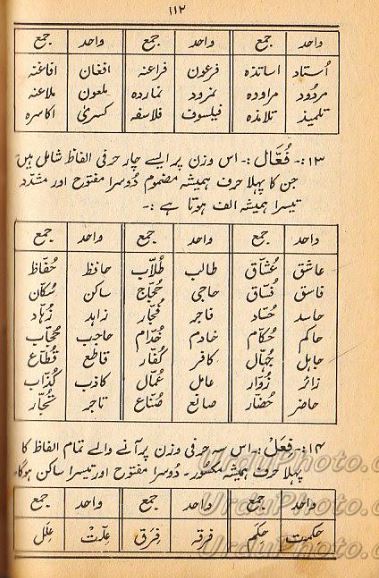 ۱۱۲
واحد جمع واحد جمع واحد جمع
اُستاد اساتذہ فرعون فراعنہ افغان افاغنہ
مردُود مراودہ نمرود نماردہ ملعون ملاعنہ
تلمیذ تلامذہ فیلسوف فلاسفہ کسریٰ اکاسرہ
۱۳:- فُعَّال :- اس وزن پر ایسے چار حرفی الفاظ شامل ہیں
جن کا پہلا حرف ہمیشہ مضموم دُوسرا مفتوح اور مشدّد
تیسرا ہمیشہ الف ہوتا ہے :-
واحد جمع واحد جمع واحد جمع
عاشق عُشّاق طالب طُلّاب حافظ حُفّاظ
فاسق فُسّاق حاجی حُجّاج ساکن سُکّان
حاسد حُسّاد فاجر فُجّار زاہد زُہّاد
حاکم حُکّام خادم خُدّام حاجب حُجّاب
جاہل جُہّال کافر کُفّار قاطع قُطّاع
زائر زُوّار عامل عُمّال کاذب کُذّاب
حاضر حُضّار صانع صُنّاع تاجر تُجّار
۱۴:- فِعَلْ :- اس سہ حرفی وزن پر آنے والے تمام الفاظ کا
پہلا حرف ہمیشہ مکسور۔ دُوسرا مفتوح اور تیسرا ساکن ہوگا۔
واحد جمع واحد جمع واحد جمع
حکمت حِکَم فرقہ فِرَق علّت عِلَل
UrduPhoto.c
UrduPhoto.c
UrduPhoto.c